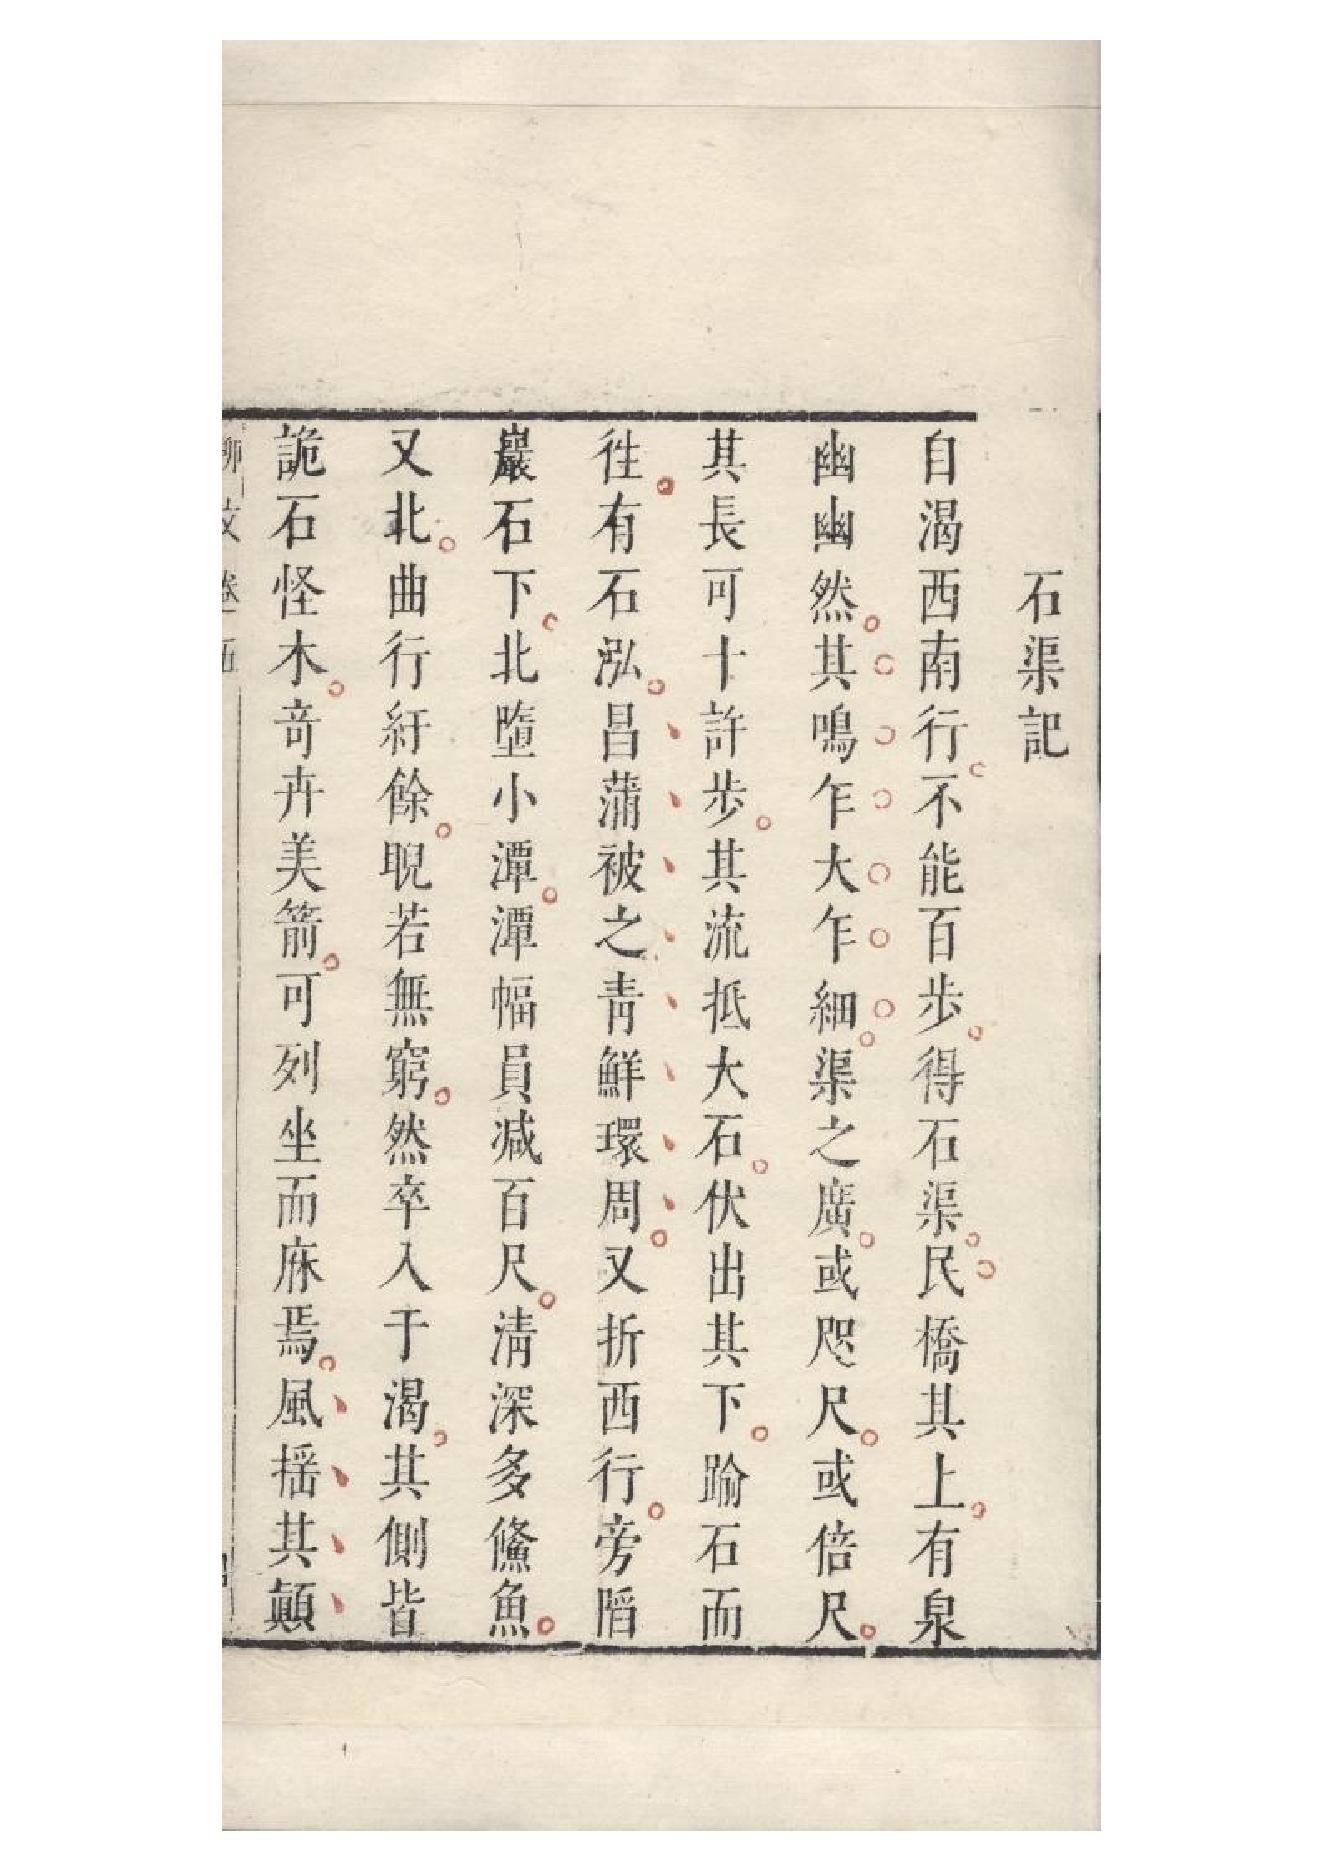 石渠記
自渴西南行不能百步得石渠民橋其上有泉
幽幽然其鳴乍大乍細渠之廣或咫尺或倍尺
其長可十許步其流抵大石伏出其下踰石而
徃有石泓昌蒲被之青鮮環周又折西行旁陷
巖石下北墮小潭潭幅員减百尺清深多鯈魚
又北曲行紆餘睨若無窮然卒入于渴其側皆
詭石怪木奇卉美箭可列坐而庥焉風摇其顛
柳文卷五